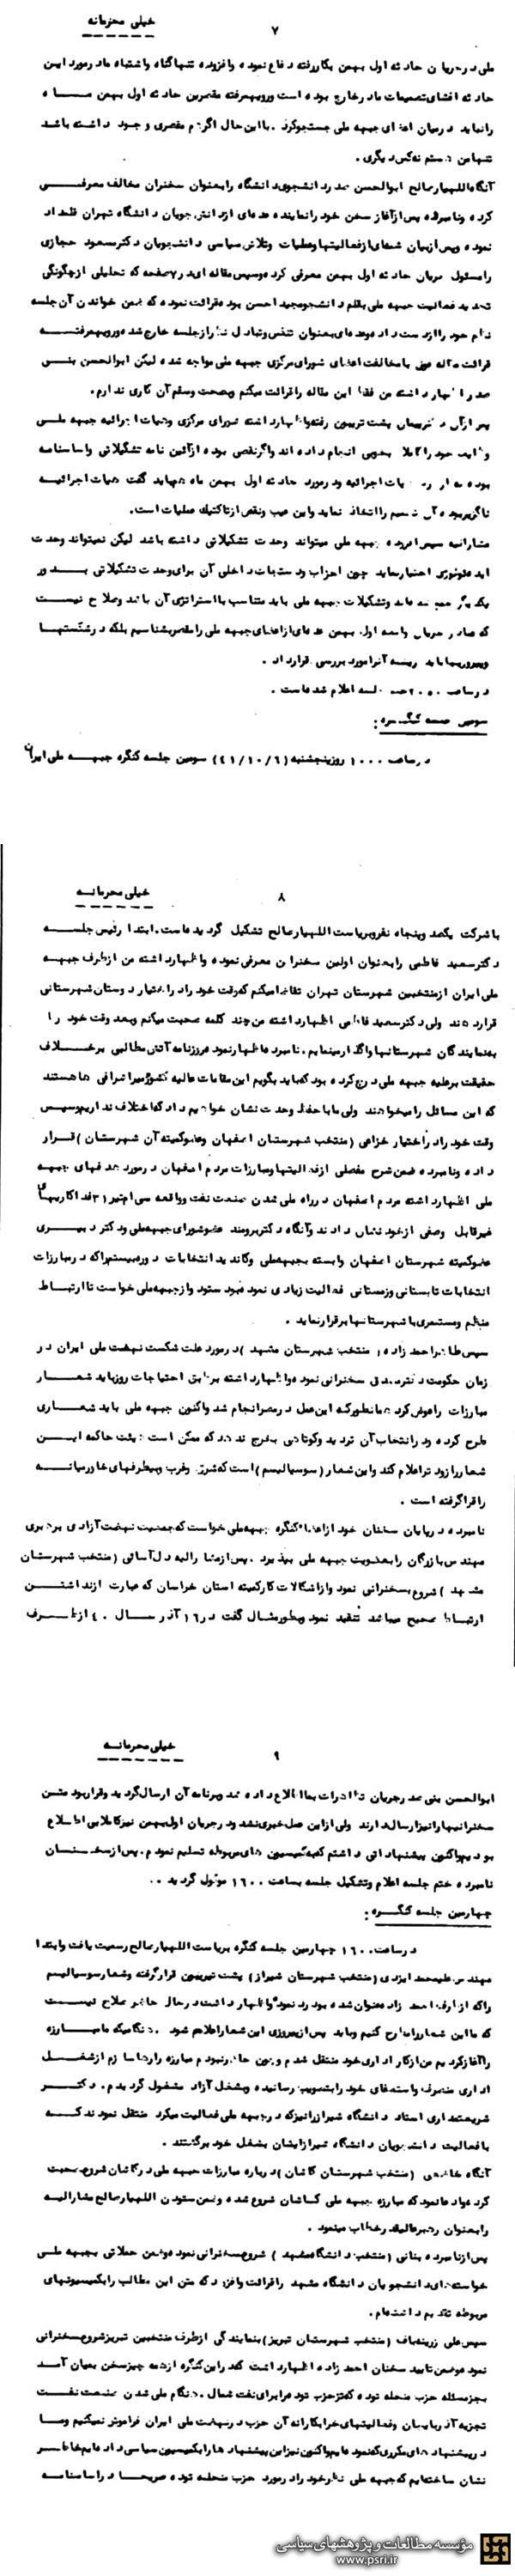 خیلی محرمانه
۷
ملی در جریان حادثه اول بهمن بکار رفته دفاع نموده وافزوده تنها گناه واشتباه ما در مورد این
حادثه افشای تصمیمات ما در خارج بوده است ورویهمرفته مقصرین حادثه اول بهمن ماه
رانباید در میان اعضای جبهه ملی جستجو کرد . با این حال اگر هم مقصری وجود داشته باشد
تنها من هستم نه کس دیگری .
آنگاه اللهیار صالح ابوالحسن بنی صدر دانشجوی دانشگاه را بعنوان سخنران مخالف معرفی
کرده ونامبرده پس از آغاز سخن خود را نماینده عده ای از دانشجویان دانشگاه تهران قلمداد
نموده وپس از بیان شمه ای از فعالیتها وعملیات وتلاش سیاسی دانشجویان دکتر مسعود حجازی
را مسئول جریان حادثه اول بهمن معرفی کرده وسپس مقاله ای در ۷ صفحه که تحلیلی از چگونگی
تجدید فعالیت جبهه ملی بقلم دانشجو مجید احسن بوده قرائت نموده که ضمن خواندن آن جلسه
نظم خود را از دست داد وعده ای بعنوان تنفس وتبادل نظر از جلسه خارج شده ورویهمرفته
قرائت مقاله فوق با مخالفت اعضای شورای مرکزی جبهه ملی مواجه شده لیکن ابوالحسن بنی
صدر اظهار داشته من فقط این مقاله را قرائت میکنم وبصحت وسقم آن کاری ندارم .
پس از آن پشت تریبون رفته واظهار داشته شورای مرکزی وهیات اجرائیه جبهه ملی
وظایف خود را کاملا بخوبی انجام داده اند واگر نقصی بوده از آئین نامه تشکیلاتی واساسنامه
بوده هیات اجرائیه ودر مورد حادثه اول بهمن ماه هم باید گفت هیات اجرائیه
ناگزیر بوده آن تصمیم را اتخاذ نماید واین عیب ونقص از تاکتیک عملیات است .
مشارالیه سپس افزوده جبهه ملی میتواند وحدت تشکیلاتی داشته باشد لیکن نمیتواند وحدت
ایدئولوژی اختیار نماید چون احزاب ودستجات داخلی آن برای وحدت تشکیلاتی بدور
یکدیگر جمع شده اند وتشکیلات جبهه ملی باید متناسب با استراتژی آن باشد وصلاح نیست
که ما در جریان واقعه اول بهمن عده ای از اعضای جبهه ملی را مقصر بشناسیم بلکه در شکستها
وپیروزیها باید ریشه آنرا مورد بررسی قرار داد .
در ساعت ۲۰۵۰ ختم جلسه اعلام شده است .
سومین جلسه کنگره :
در ساعت ۱۰۰۰ روز پنجشنبه (۴۱/۱۰/۶) سومین جلسه کنگره جبهه ملی ایران
خیلی محرمانه
۸
با شرکت یکصد وپنجاه نفر وبریاست اللهیار صالح تشکیل گردیده است . ابتدا رئیس جلسه
دکتر سعید فاطمی را بعنوان اولین سخنران معرفی نموده واظهار داشته من از طرف جبهه
ملی ایران از منتخبین شهرستان تهران تقاضا میکنم که وقت خود را در اختیار دوستان شهرستانی
قرار دهند ولی دکتر سعید فاطمی اظهار داشته من چند کلمه صحبت میکنم وبعد وقت خود را
به نمایندگان شهرستانها واگذار مینمایم . نامبرده اظهار نمود در روزنامه آتش مطالبی برخلاف
حقیقت بر علیه جبهه ملی درج کرده بود که باید بگویم این مقامات عالیه کشور میراشرافی ها هستند
که این مسائل را میخواهند ولی ما با حفظ وحدت نشان خواهیم داد که اختلاف نداریم وسپس
وقت خود را در اختیار خزاعی (منتخب شهرستان اصفهان وعضو کمیته آن شهرستان) قرار
داده ونامبرده ضمن شرح مفصلی از فعالیتها ومبارزات مردم اصفهان در مورد هدفهای جبهه
ملی اظهار داشته مردم اصفهان در راه ملی شدن صنعت نفت وواقعه سی ام تیر ۳۱ فداکاریهای
غیر قابل وصفی از خود نشان دادند وآنگاه دکتر برومند عضو شورای جبهه ملی ودکتر دبیری
عضو کمیته شهرستان اصفهان وابسته بجبهه ملی وکاندید انتخابات دوره بیستم را که در مبارزات
انتخابات تابستانی وزمستانی فعالیت زیادی نموده بود ستود واز جبهه ملی خواست تا ارتباط
منظم ومستمری با شهرستانها برقرار نماید .
سپس طاهر احمدزاده (منتخب شهرستان مشهد) در مورد علت شکست نهضت ملی ایران در
زمان حکومت دکتر مصدق سخنرانی نموده واظهار داشته بر طبق احتیاجات روز باید شعار
مبارزات را عوض کرد همانطور که این عمل در مصر انجام شد واکنون جبهه ملی باید شعاری
طرح کرده ودر انتخاب آن تردید وکوتاهی بخرج ندهد که ممکن است هیئت حاکمه این
شعار را زودتر اعلام کند واین شعار (سوسیالیسم) است که شرق وغرب وبیطرفهای خاورمیانه
را فرا گرفته است .
نامبرده در پایان سخنان خود از اعضاء کنگره جبهه ملی خواست که جمعیت نهضت آزادی برهبری
مهندس بازرگان را بعضویت جبهه ملی بپذیرد . پس از مشارالیه دل آسائی (منتخب شهرستان
مشهد) شروع بسخنرانی نمود واز اشکالات کار کمیته استان خراسان که عبارت از نداشتن
ارتباط صحیح میباشد تنقید نمود وبطور مثال گفت در ۱۶ آذر سال ۴۰ از طرف
خیلی محرمانه
۹
ابوالحسن بنی صدر جریان تظاهرات بما اطلاع داده شد وبرنامه آن ارسال گردید وقرار بود متن
سخنرانیها را نیز ارسال دارند ولی از این عمل خبری نشد ودر جریان اول بهمن نیز کاملا بی اطلاع
بودیم واکنون پیشنهاداتی داشتم که به کمیسیون های مربوطه تسلیم نمودم . پس از سخنان
نامبرده ختم جلسه اعلام وتشکیل جلسه بساعت ۱۶۰۰ موکول گردید .
چهارمین جلسه کنگره :
در ساعت ۱۶۰۰ چهارمین جلسه کنگره بریاست اللهیار صالح رسمیت یافت وابتدا
مهندس علیمحمد ایزدی (منتخب شهرستان شیراز) پشت تریبون قرار گرفته وشعار سوسیالیسم
را که از طرف احمدزاده عنوان شده بود رد نموده واظهار داشت در حال حاضر صلاح نیست
که ما این شعار را مطرح کنیم وباید پس از پیروزی این شعار را اعلام شود . هنگامیکه ما مبارزه
را آغاز کردیم من از کار اداری خود منتقل شدم وچون حاضر نبودم مبارزه را رها سازم از شغل
اداری منصرف واستعفای خود را بتصویب رسانیده وبشغل آزاد مشغول گردیدم . دکتر
شریعتمداری استاد دانشگاه شیراز را نیز که در جبهه ملی فعالیت میکرد منتقل نمودند که
با فعالیت دانشجویان دانشگاه شیراز ایشان بشغل خود برگشتند .
آنگاه (منتخب شهرستان کاشان) درباره مبارزات جبهه ملی در کاشان شروع بصحبت
کرد وادعا نمود که مبارزه جبهه ملی کاشان شروع شده وضمن ستودن اللهیار صالح مشارالیه
را بعنوان رهبر عالیقدر خطاب مینمود .
پس از نامبرده بنائی (منتخب دانشگاه مشهد) شروع بسخنرانی نموده وضمن حملاتی بجبهه ملی
خواسته های دانشجویان دانشگاه مشهد را قرائت وافزود که متن این مطالب را بکمیسیونهای
مربوطه تقدیم داشته ام .
سپس علی زرینه باف (منتخب شهرستان تبریز) بنمایندگی از طرف منتخبین تبریز شروع بسخنرانی
نمود وضمن تایید سخنان احمدزاده اظهار داشت که در این کنگره از همه چیز سخن بمیان آمد
بجز مسئله حزب منحله توده که جز حزب توده برای نفت شمال . هنگام ملی شدن صنعت نفت
تجزیه آذربایجان وفعالیتهای خرابکارانه آن حزب در نهضت ملی ایران فراموش نمیکنیم وما
در پیشنهادهای مکرری که نموده ایم واکنون نیز این پیشنهادها را بکمیسیون سیاسی داده ایم خاطر
نشان ساخته ایم که جبهه ملی نظر خود را در مورد حزب منحله توده صریحا در اساسنامه
مؤسسه مطالعات و پژوهشهای سیاسی
www.psri.ir